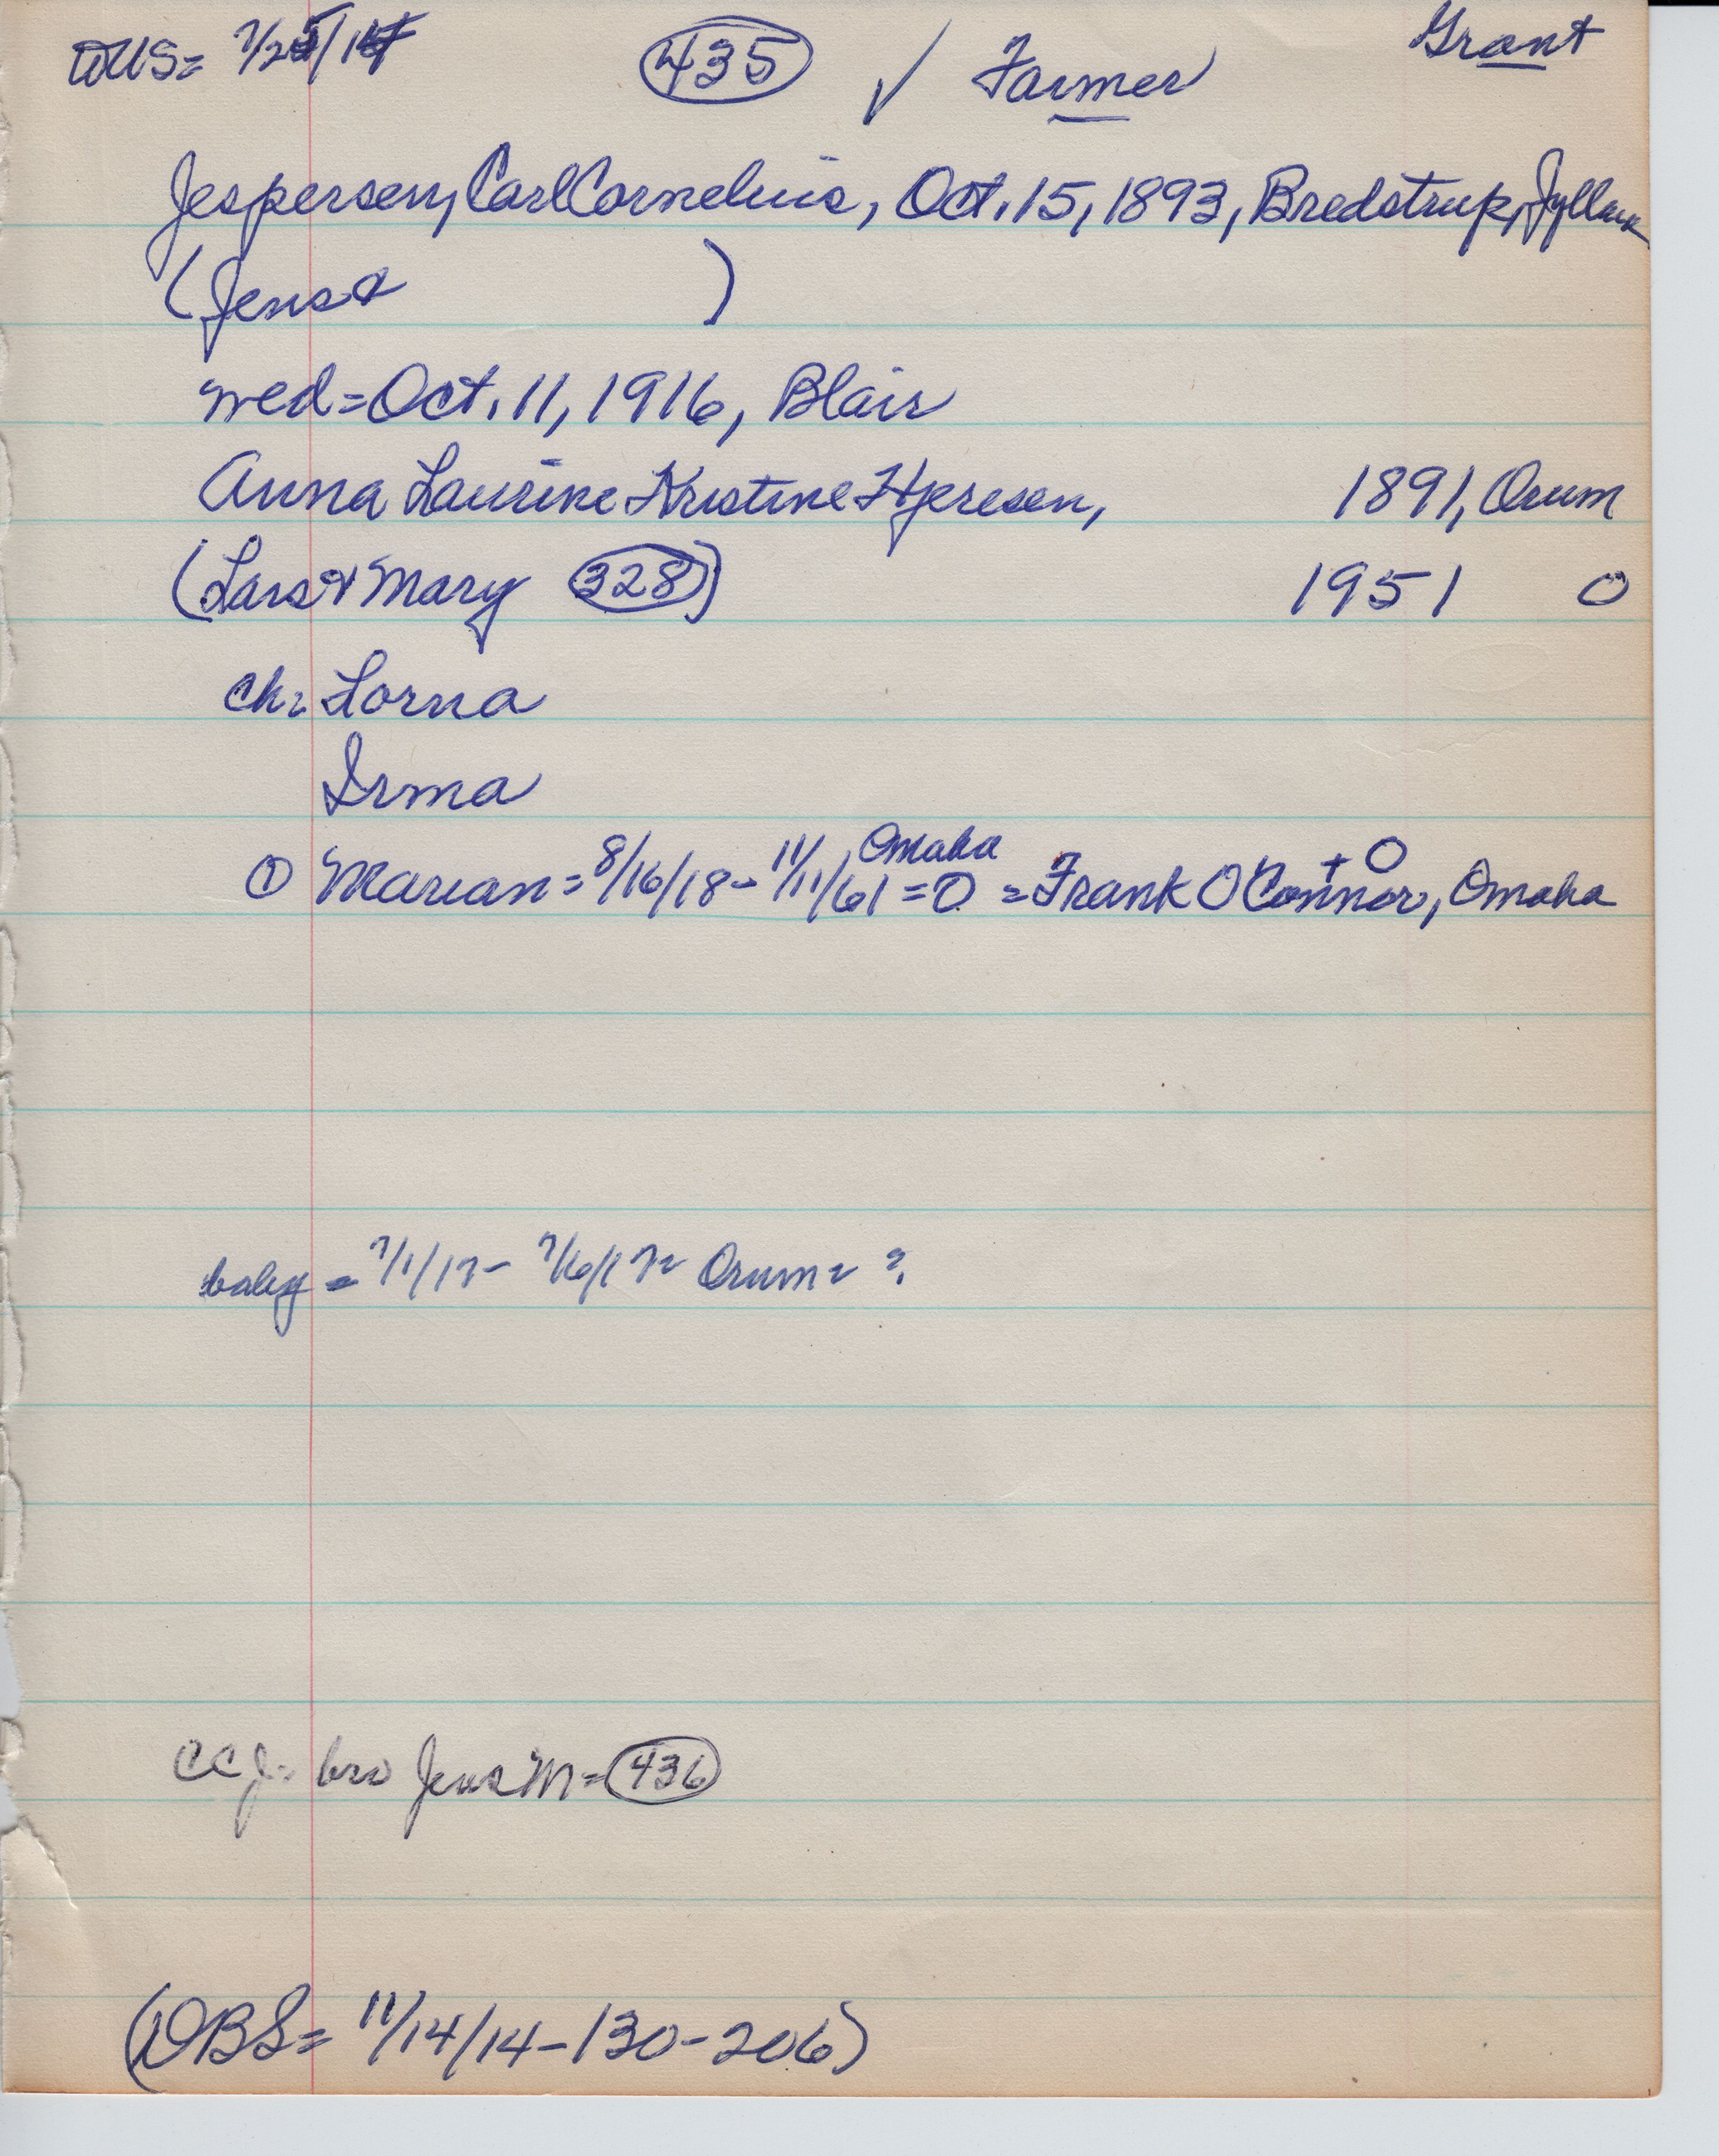 DUS= 7/25/14 (435) ✓ Farmer Grant
Jespersen, Carl Cornelius, Oct. 15, 1893, Bredstrup, Jylland
(Jens & )
wed=Oct. 11, 1916, Blair
Anna Laurine Kristine Hjeresen, 1891, Orum
(Lars & Mary (328)) 1951 O
ch: Lorna
Irma
① Marian = 8/16/18 - 11/11/61, Omaha = O = Frank O'Connor, + O Omaha
baby = 7/1/17 - 7/6/17 = Orum = ?
CCJ= bro Jens M= (436)
(DBS= 11/14/14-130-206)